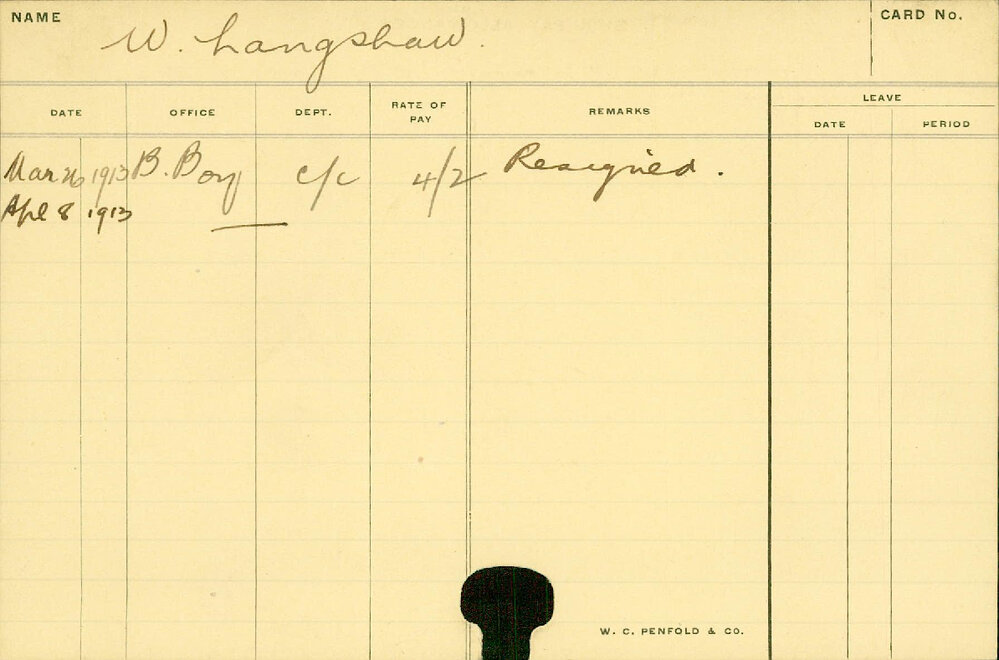 NAME W. Langshaw. CARD No.
LEAVE
DATE OFFICE DEPT. RATE OF PAY REMARKS DATE PERIOD
Mar 26 1913 B. Boy c/c 4/2 Resigned.
Apl 8 1913
W. C. PENFOLD & CO.